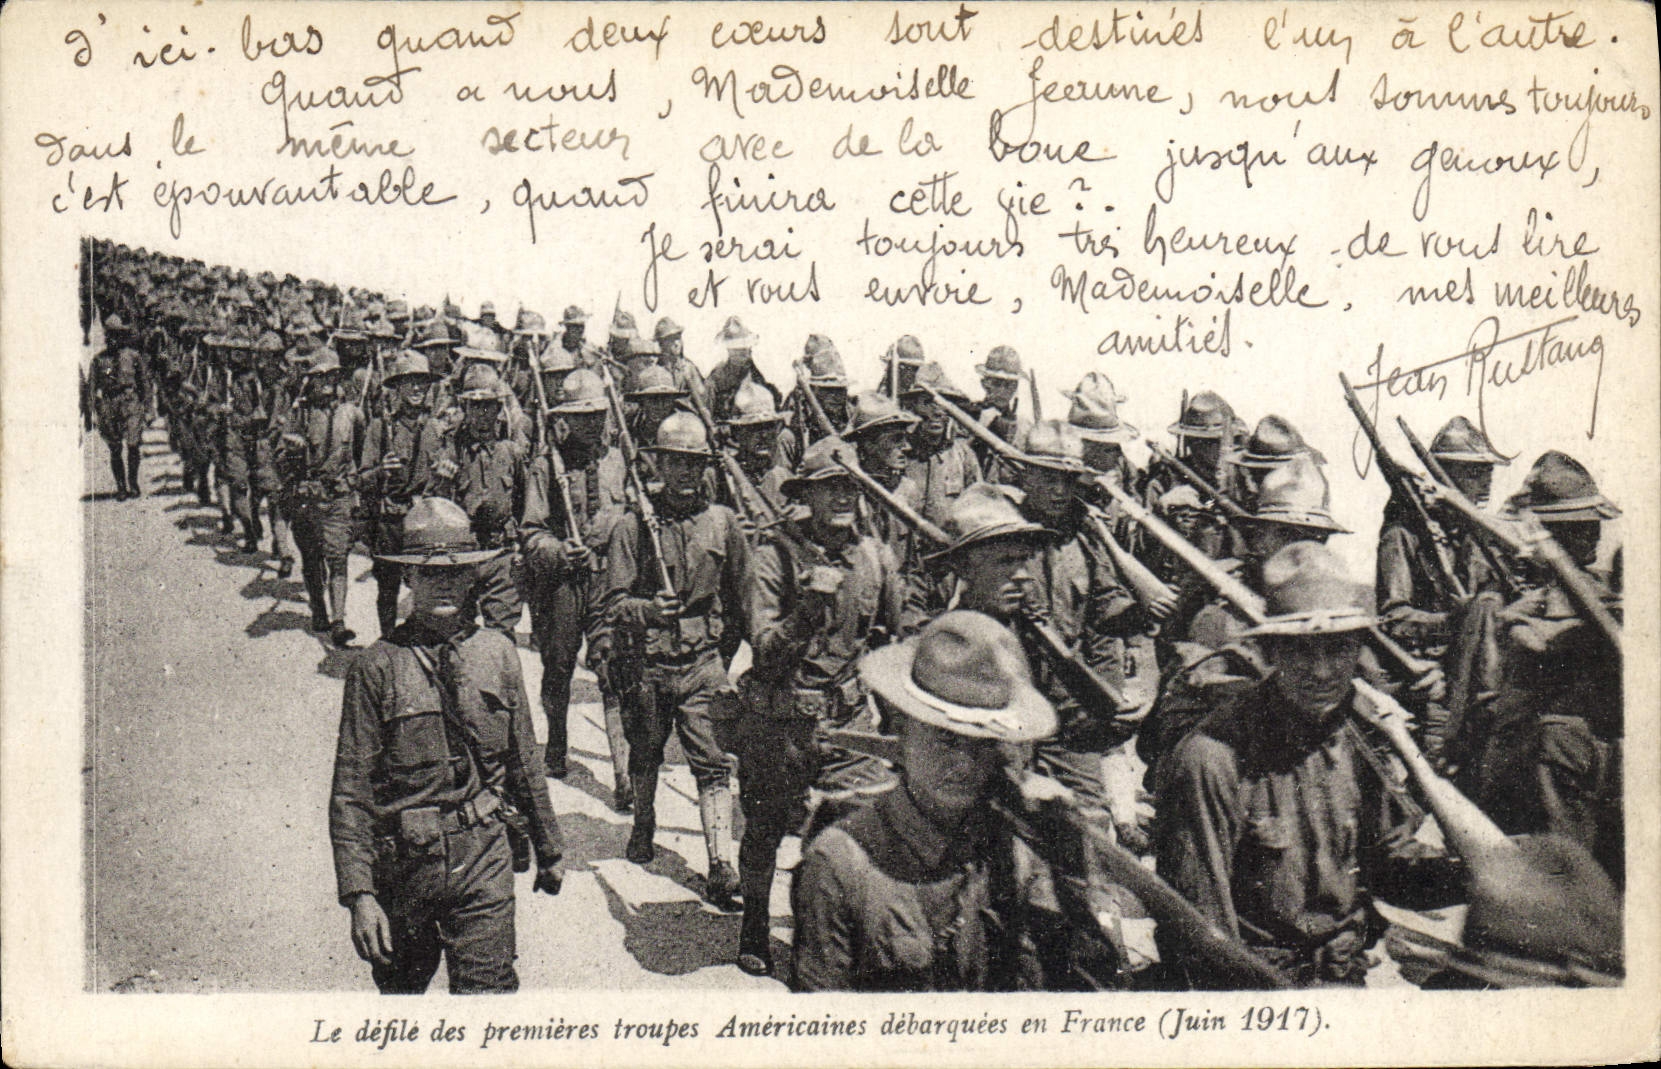 d'ici-bas quand deux cœurs sont destinés l'un à l'autre.
Quand a nous, Mademoiselle Jeanne, nous sommes toujours
dans le même secteur avec de la boue jusqu'aux genoux,
c'est épouvantable, quand finira cette vie ?.
Je serai toujours très heureux de vous lire
et vous envoie, Mademoiselle, mes meilleures
amitiés.
Jean Rustang
Le défilé des premières troupes Américaines débarquées en France (Juin 1917).